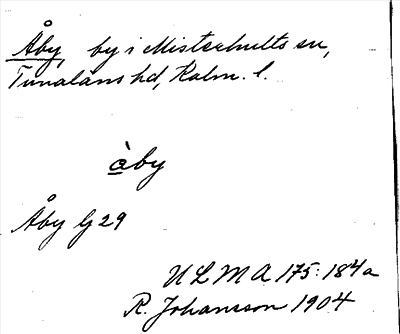 Åby, by i Misterhults sn,
Tunaläns hd, Kalm. l.
àby
Åby Gj 29
ULMA 175:184a
R. Johansson 1904